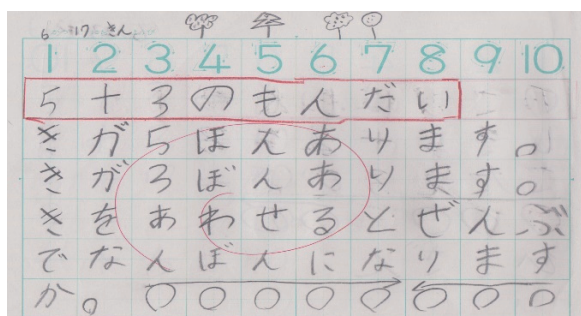 6 17 きん
1 2 3 4 5 6 7 8 9 10
5+3のもんだい
きが5ほんあります。
きが3ぼんあります。
きをあわせるとぜんぶ
でなんぼんになります
か。○○○○○○○○